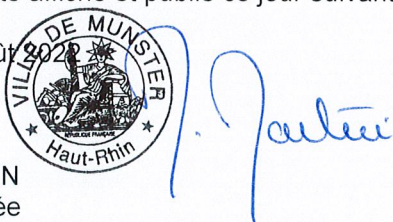 affiché et publié ce jour suivant
ût 2022
VILLE DE MUNSTER
RÉPUBLIQUE FRANÇAISE
Haut-Rhin
N
ée